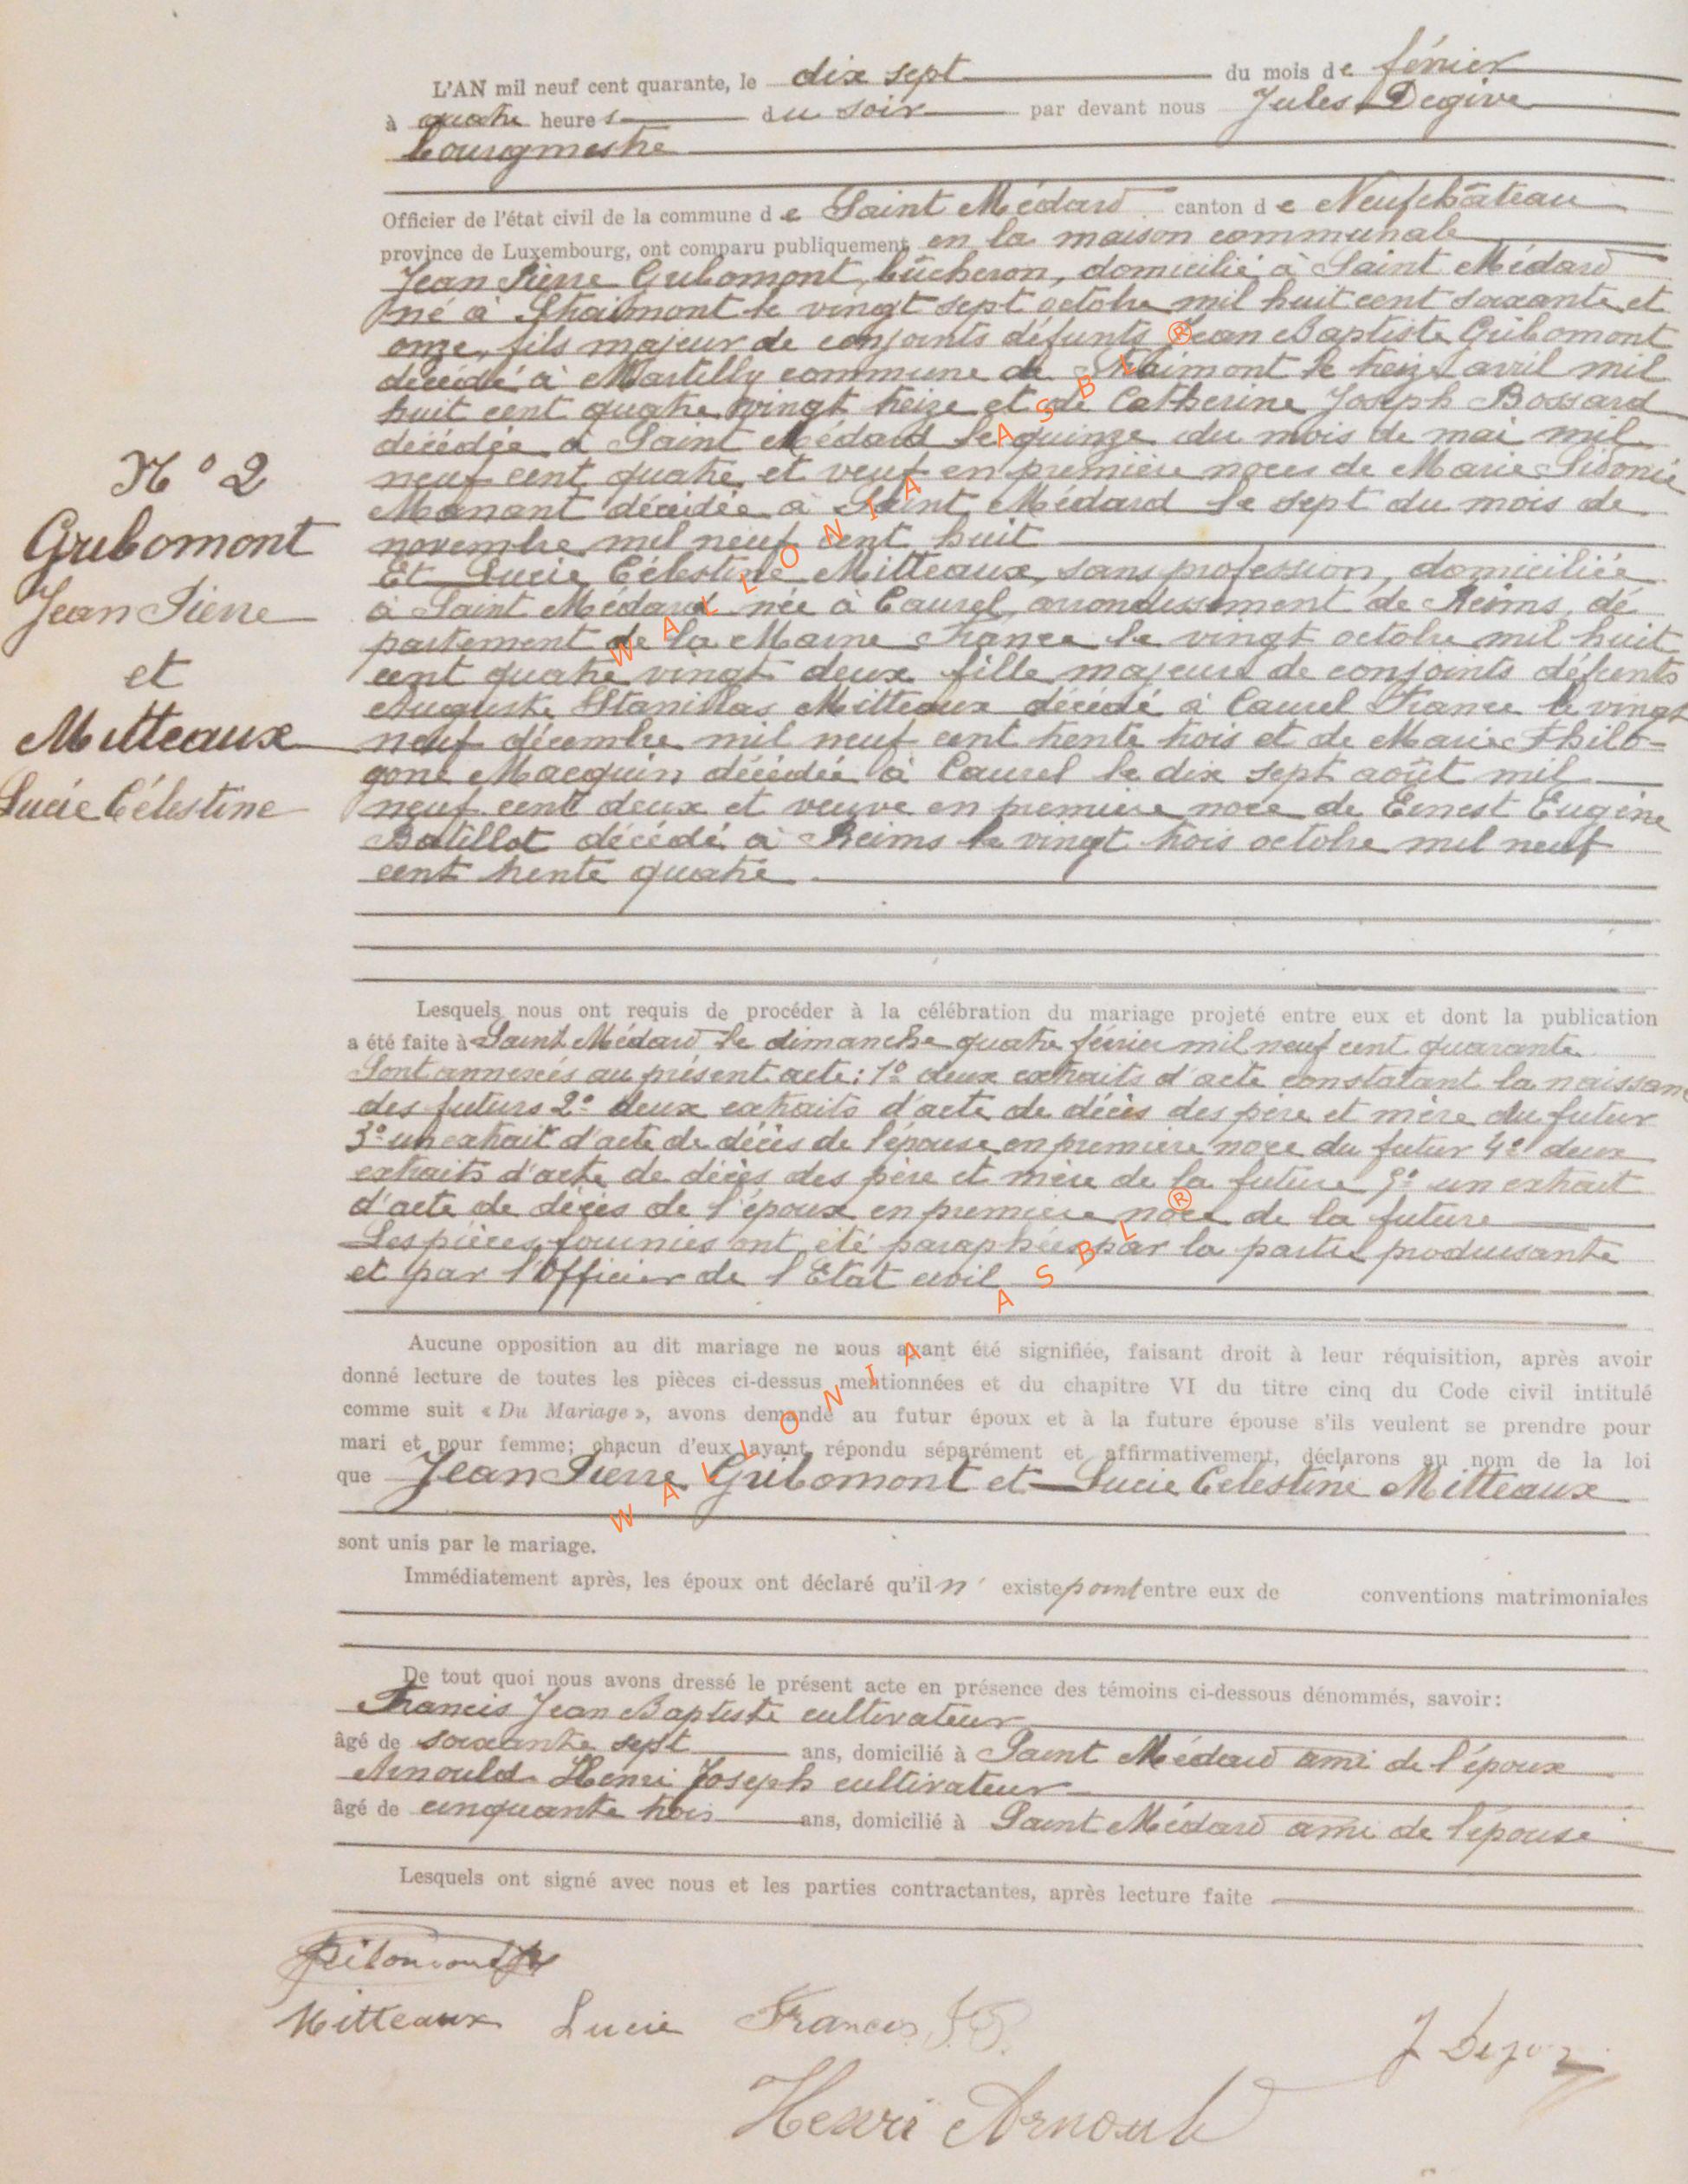 L'AN mil neuf cent quarante, le dix sept du mois de février
à quatre heures du soir par devant nous Jules Degive
bourgmestre
Officier de l'état civil de la commune de Saint Médard canton de Neufchâteau
province de Luxembourg, ont comparu publiquement en la maison communale
Jean Pierre Gribomont, bûcheron, domicilié à Saint Médard
né à Straimont le vingt sept octobre mil huit cent soixante et
onze, fils majeur de conjoints défunts Jean Baptiste Gribomont
décédé à Martilly commune de Straimont le treize avril mil
huit cent quatre vingt treize et de Catherine Joseph Bossard
décédée à Saint Médard le quinze du mois de mai mil
neuf cent quatre et veuf en première noces de Marie Sidonie
Manant décédée à Saint Médard le sept du mois de
novembre mil neuf cent huit
N° 2
Gribomont
Jean Pierre
et
Mitteaux
Lucie Célestine
Et Lucie Célestine Mitteaux, sans profession, domiciliée
à Saint Médard née à Caurel, arrondissement de Reims, dé
partement de la Marne France le vingt octobre mil huit
cent quatre vingt deux fille majeure de conjoints défunts
Auguste Stanislas Mitteaux décédé à Caurel France le vingt
neuf décembre mil neuf cent trente trois et de Marie Philo-
gone Macquin décédée à Caurel le dix sept août mil
neuf cent deux et veuve en première noce de Ernest Eugène
Batillot décédé à Reims le vingt trois octobre mil neuf
cent trente quatre.
Lesquels nous ont requis de procéder à la célébration du mariage projeté entre eux et dont la publication
a été faite à Saint Médard le dimanche quatre février mil neuf cent quarante
Sont annexés au présent acte: 1° deux extraits d'acte constatant la naissance
des futurs 2° deux extraits d'acte de décès des père et mère du futur
3° un extrait d'acte de décès de l'épouse en première noce du futur 4° deux
extraits d'acte de décès des père et mère de la future 5° un extrait
d'acte de décès de l'époux en première noce de la future
Les pièces fournies ont été paraphées par la partie produisante
et par l'Officier de l'Etat civil
Aucune opposition au dit mariage ne nous ayant été signifiée, faisant droit à leur réquisition, après avoir
donné lecture de toutes les pièces ci-dessus mentionnées et du chapitre VI du titre cinq du Code civil intitulé
comme suit « Du Mariage », avons demandé au futur époux et à la future épouse s'ils veulent se prendre pour
mari et pour femme; chacun d'eux ayant répondu séparément et affirmativement, déclarons au nom de la loi
que Jean Pierre Gribomont et Lucie Celestine Mitteaux
sont unis par le mariage.
Immédiatement après, les époux ont déclaré qu'il n' existe point entre eux de conventions matrimoniales
De tout quoi nous avons dressé le présent acte en présence des témoins ci-dessous dénommés, savoir:
Francis Jean Baptiste cultivateur
âgé de soixante sept ans, domicilié à Saint Médard ami de l'époux
Arnould Henri Joseph cultivateur
âgé de cinquante trois ans, domicilié à Saint Médard ami de l'épouse
Lesquels ont signé avec nous et les parties contractantes, après lecture faite
Mitteaux Lucie Francis J.B.
Henri Arnould
WALLONIA ASBL ®
WALLONIA ASBL ®